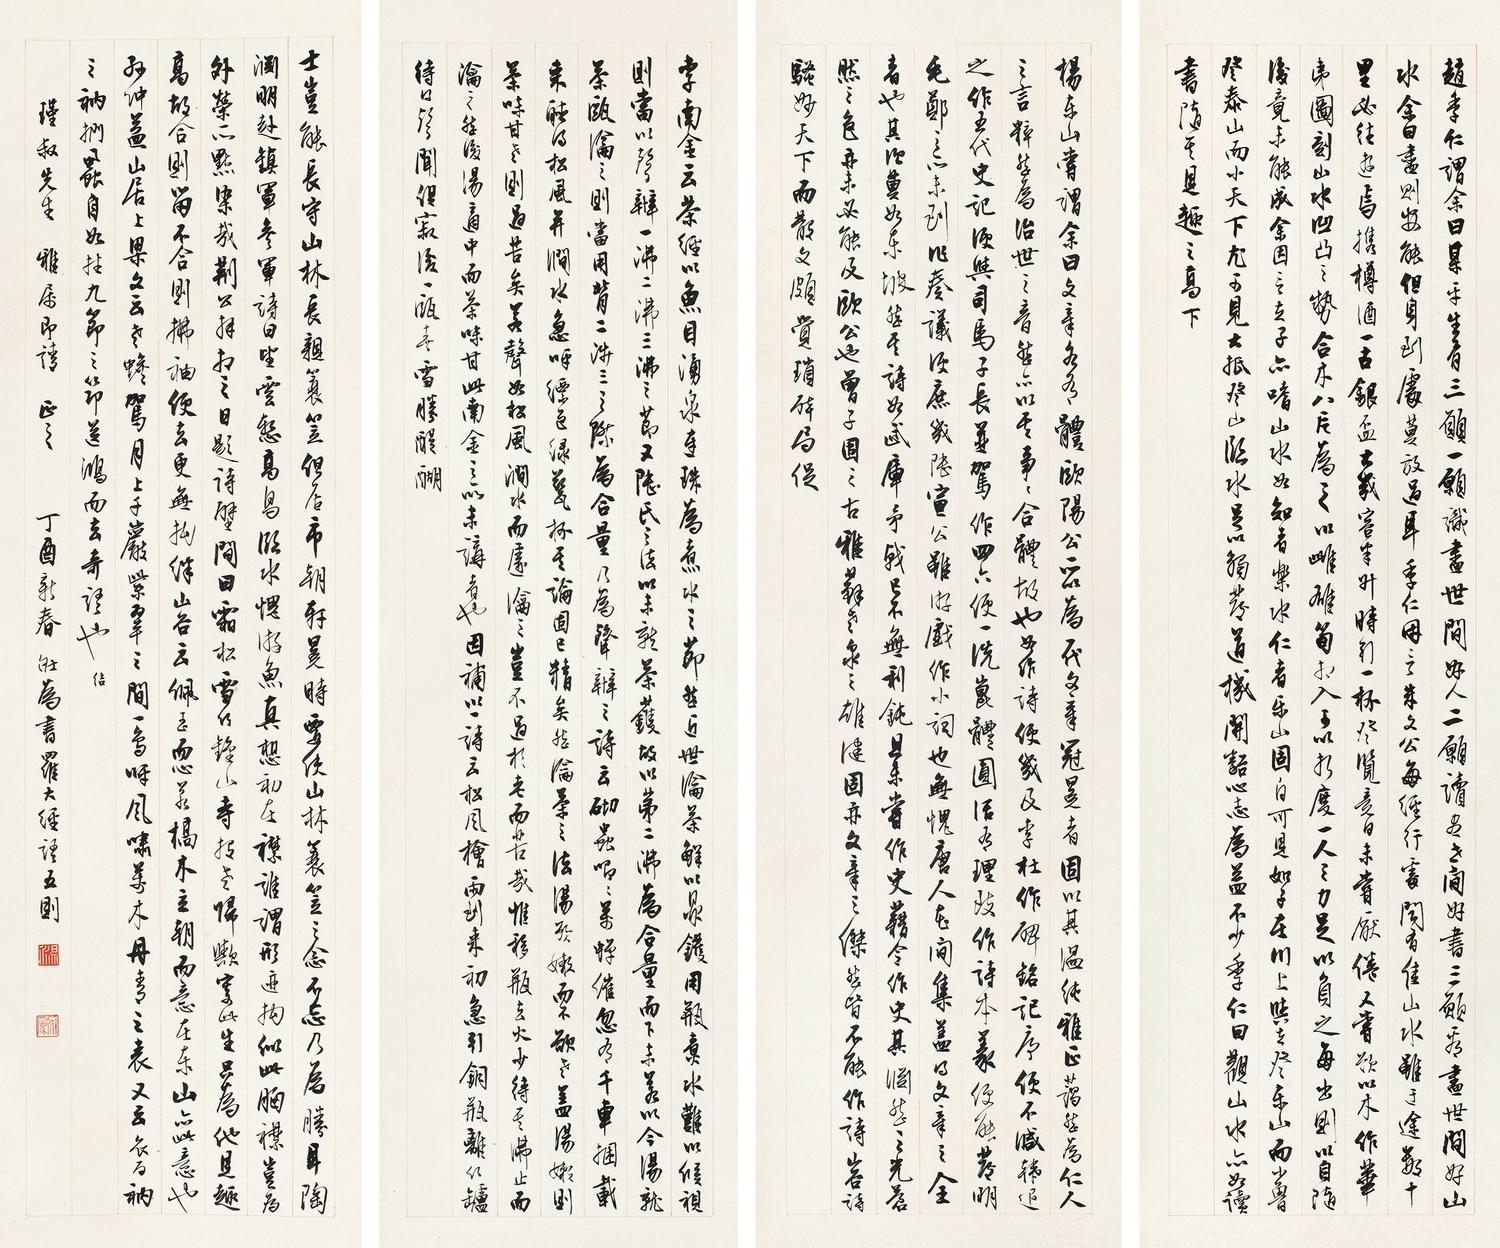 趙季仁謂余曰某平生有三願一願識盡世間好人二願讀盡世間好書三願看盡世間好山
水余曰盡則安能但身到處莫放過耳季仁因言朱文公每經行處聞有佳山水雖迂途數十
里必往遊焉携樽酒一古銀盃大幾容半升時引一杯登覽竟日未嘗厭倦又嘗欲以木作華
夷圖刻山水凹凸之勢合木八片為之以雌雄筍相入可以折度一人之力足以負之每出則以自隨
後竟未能成余因言夫子亦嗜山水如知者樂水仁者樂山固自可見如子在川上與夫登東山而小魯
登泰山而小天下尤可見大抵登山臨水足以觸發道機開豁心志為益不少季仁曰觀山水亦如讀
書隨其見趣之高下
楊東山嘗謂余曰文章各有體歐陽公所以為一代文章冠冕者固以其溫純雅正藹然為仁人
之言粹然為治世之音然亦以其事事合體故也如作詩便幾及李杜作碑銘記序便不減韓退
之作五代史記便與司馬子長並駕作四六便一洗崑體圓活有理致作詩本義便能發明
毛鄭之所未到作奏議便庶幾陸宣公雖游戲作小詞也無愧唐人花間集蓋得文章之全
者也其次莫如東坡然其詩如武庫矛戟已不無利鈍且未嘗作史藉令作史其淵然之光蒼
然之色亦未必能及歐公也曾子固之古雅蘇老泉之雄健固亦文章之傑然皆不能作詩山谷詩
騷妙天下而散文頗覺瑣碎局促
李南金云茶經以魚目湧泉連珠為煮水之節然近世瀹茶鮮以鼎鑊用瓶煮水難以候視
則當以聲辨一沸二沸三沸之節又陸氏之法以未就茶鑊故以第二沸為合量而下未若以今湯就
茶甌瀹之則當用背二涉三之際為合量乃為聲辨之詩云砌蟲唧唧萬蟬催忽有千車捆載
來聽得松風并澗水急呼縹色綠瓷杯其論固已精矣然瀹茶之法湯欲嫩而不欲老蓋湯嫩則
茶味甘老則過苦矣若聲如松風澗水而遽瀹之豈不過於老而苦哉惟移瓶去火少待其沸止而
瀹之然後湯適中而茶味甘此南金之所未講者也因補以一詩云松風檜雨到來初急引銅瓶離竹爐
待得聲聞俱寂後一甌春雪勝醍醐
士豈能長守山林長親蓑笠但居市朝軒冕時要使山林蓑笠之念不忘乃為勝耳陶
淵明赴鎮軍參軍詩曰望雲慚高鳥臨水愧游魚真想初在襟誰謂形迹拘似此胸襟豈為
外榮所點染哉荊公拜相之日題詩壁間曰霜松雪竹鍾山寺投老歸歟寄此生只為他見趣
高故合則留不合則拂袖便去更無拘絆山谷云佩玉而心若槁木立朝而意在東山亦此意也
孫仲益山居上梁文云老蟾駕月上千巖紫翠之間一鳥呼風嘯萬木丹青之表又云衣百衲
之衲捫蝨自如拄九節之筇送鴻而去奇語也
瑾叔先生 雅屬即請 正之 丁酉新春 壯為書羅大經語五則